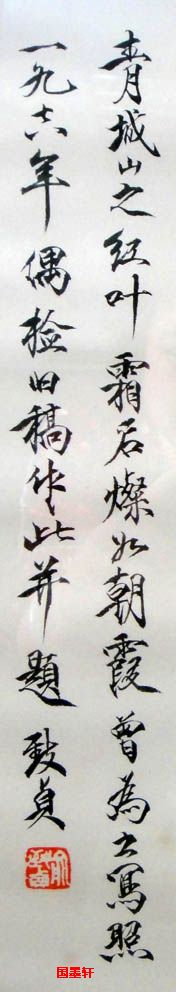 青城山之红叶霜后燦如朝霞曾為之写照
一九六年偶捡旧稿作此并题致贞
国墨轩